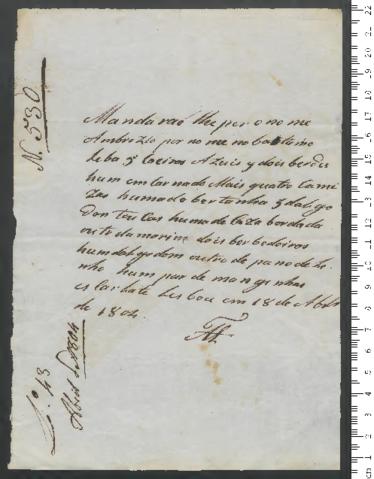 N. 530
Mandaraó lhe por o no me
Ambrozio por no me no bautismo
leba 3 Coeiros Azuis y dois berdes
hum emcarnado Mais quatro Cami
zas huma do bertanha y d algo
don toucas huma de Caza bordada
outr da morina dois berbedoiros
hum d algodom outro de pano de Li
nho hum par de mangi nhas
escarlate Lisboa em 18 de Abril
de 1804
N.º 43
Abril de 1804